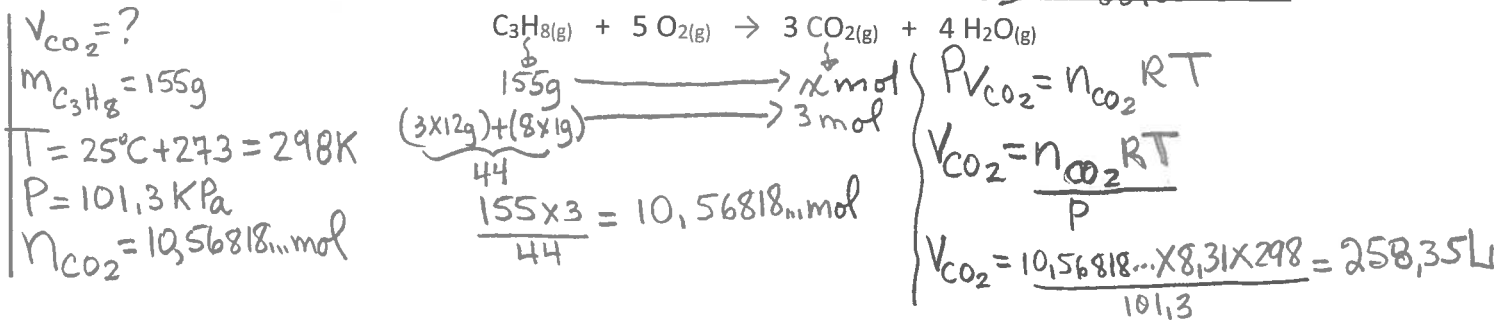 V_CO₂ = ?
m_C₃H₈ = 155g
T = 25°C + 273 = 298K
P = 101,3 KPa
n_CO₂ = 10,56818... mol
C₃H₈(g) + 5 O₂(g) → 3 CO₂(g) + 4 H₂O(g)
155g → x mol
(3x12g)+(8x1g) → 3 mol
44
155 x 3 / 44 = 10,56818... mol
PV_CO₂ = n_CO₂ RT
V_CO₂ = n_CO₂ RT / P
V_CO₂ = 10,56818... x 8,31 x 298 / 101,3 = 258,35L